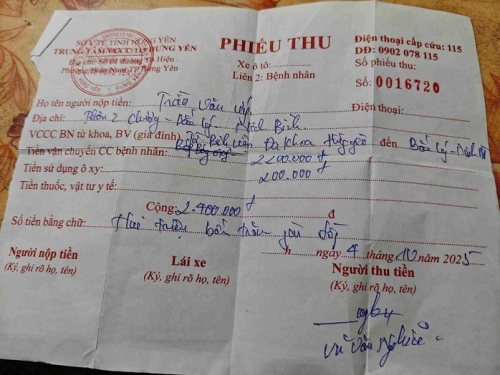 SỞ Y TẾ TỈNH HƯNG YÊN
TRUNG TÂM VCCC TP HƯNG YÊN
Địa chỉ: Số 01 đường Tô Hiệu
Phường Hiến Nam, TP Hưng Yên
PHIẾU THU
Xe ô tô:
Liên 2: Bệnh nhân
Điện thoại cấp cứu: 115
DĐ: 0902 078 115
Số phiếu thu:
Số: 0016720
Họ tên người nộp tiền: Trần Văn
Điện thoại:
Địa chỉ: 2 Lý Bình
VCCC BN từ khoa, BV (gia đình) Bệnh viện Đa khoa đến Lý
Tiền vận chuyển CC bệnh nhân: 2200.000 đ
Tiền sử dụng ô xy: 200.000
Tiền thuốc, vật tư y tế:
Cộng: 2.400.000 đ
Số tiền bằng chữ: Hai triệu bốn trăm
h ngày 4 tháng 10 năm 2025
Người nộp tiền
(Ký, ghi rõ họ, tên)
Lái xe
(Ký, ghi rõ họ, tên)
Người thu tiền
(Ký, ghi rõ họ, tên)
Vũ Văn